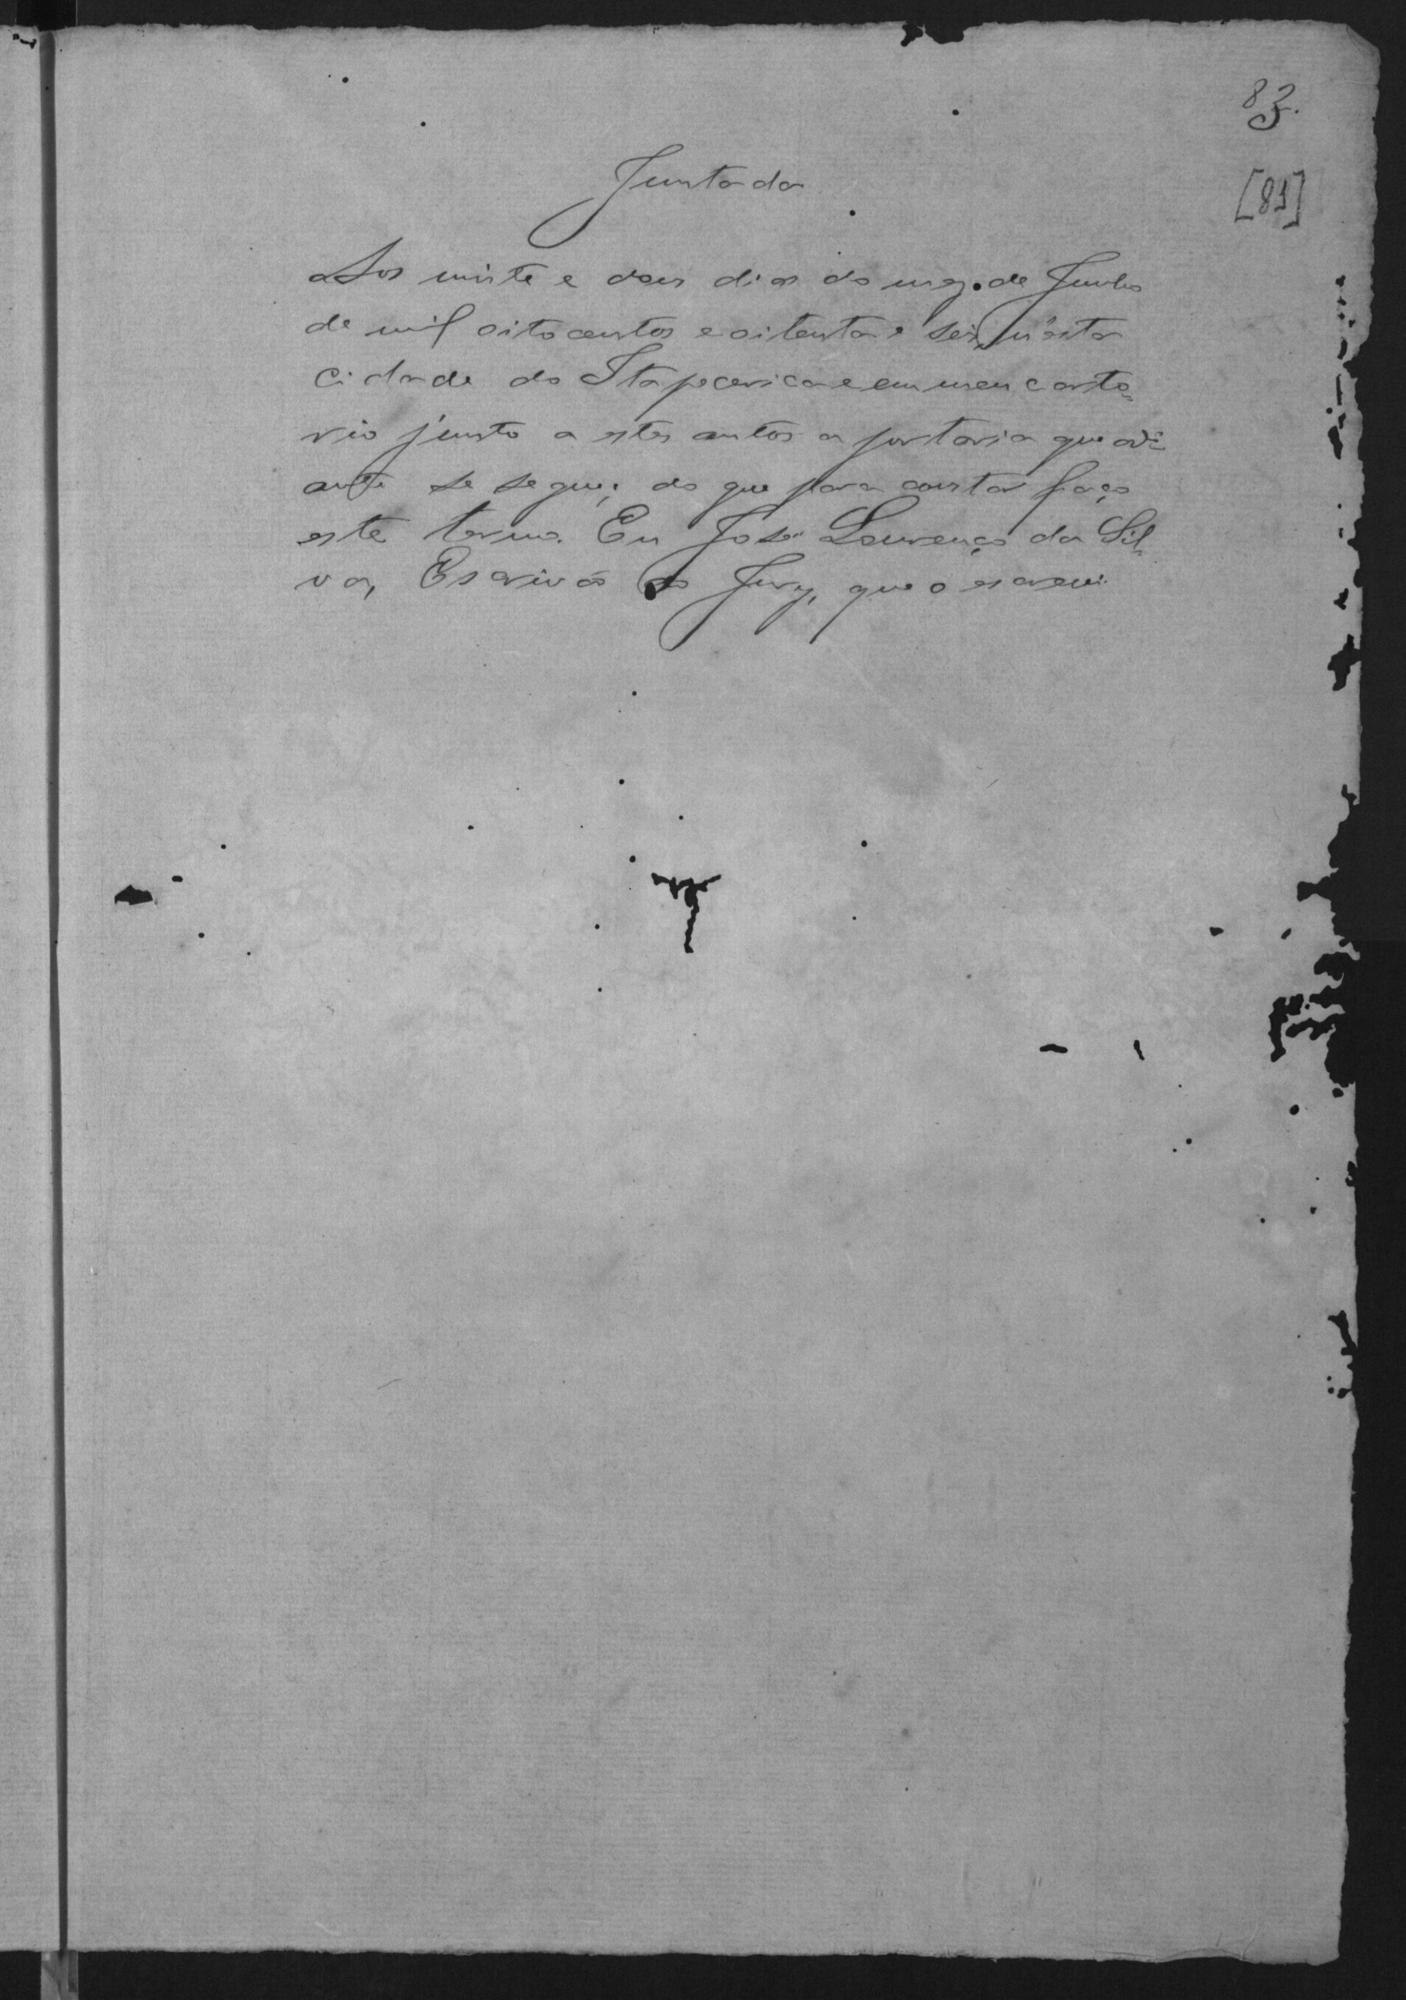 83.
[81]
Juntada
Aos vinte e dous dias do mez de Junho
de mil oito centos e oitenta e seis, n'esta
cidade do Itapecerica e em meu carto=
rio junto a estes autos a portaria que adi=
ante se segue; do que para constar faço
este termo. Eu José Lourenço da Sil
va, Escrivão do Jury, que o escrevi.